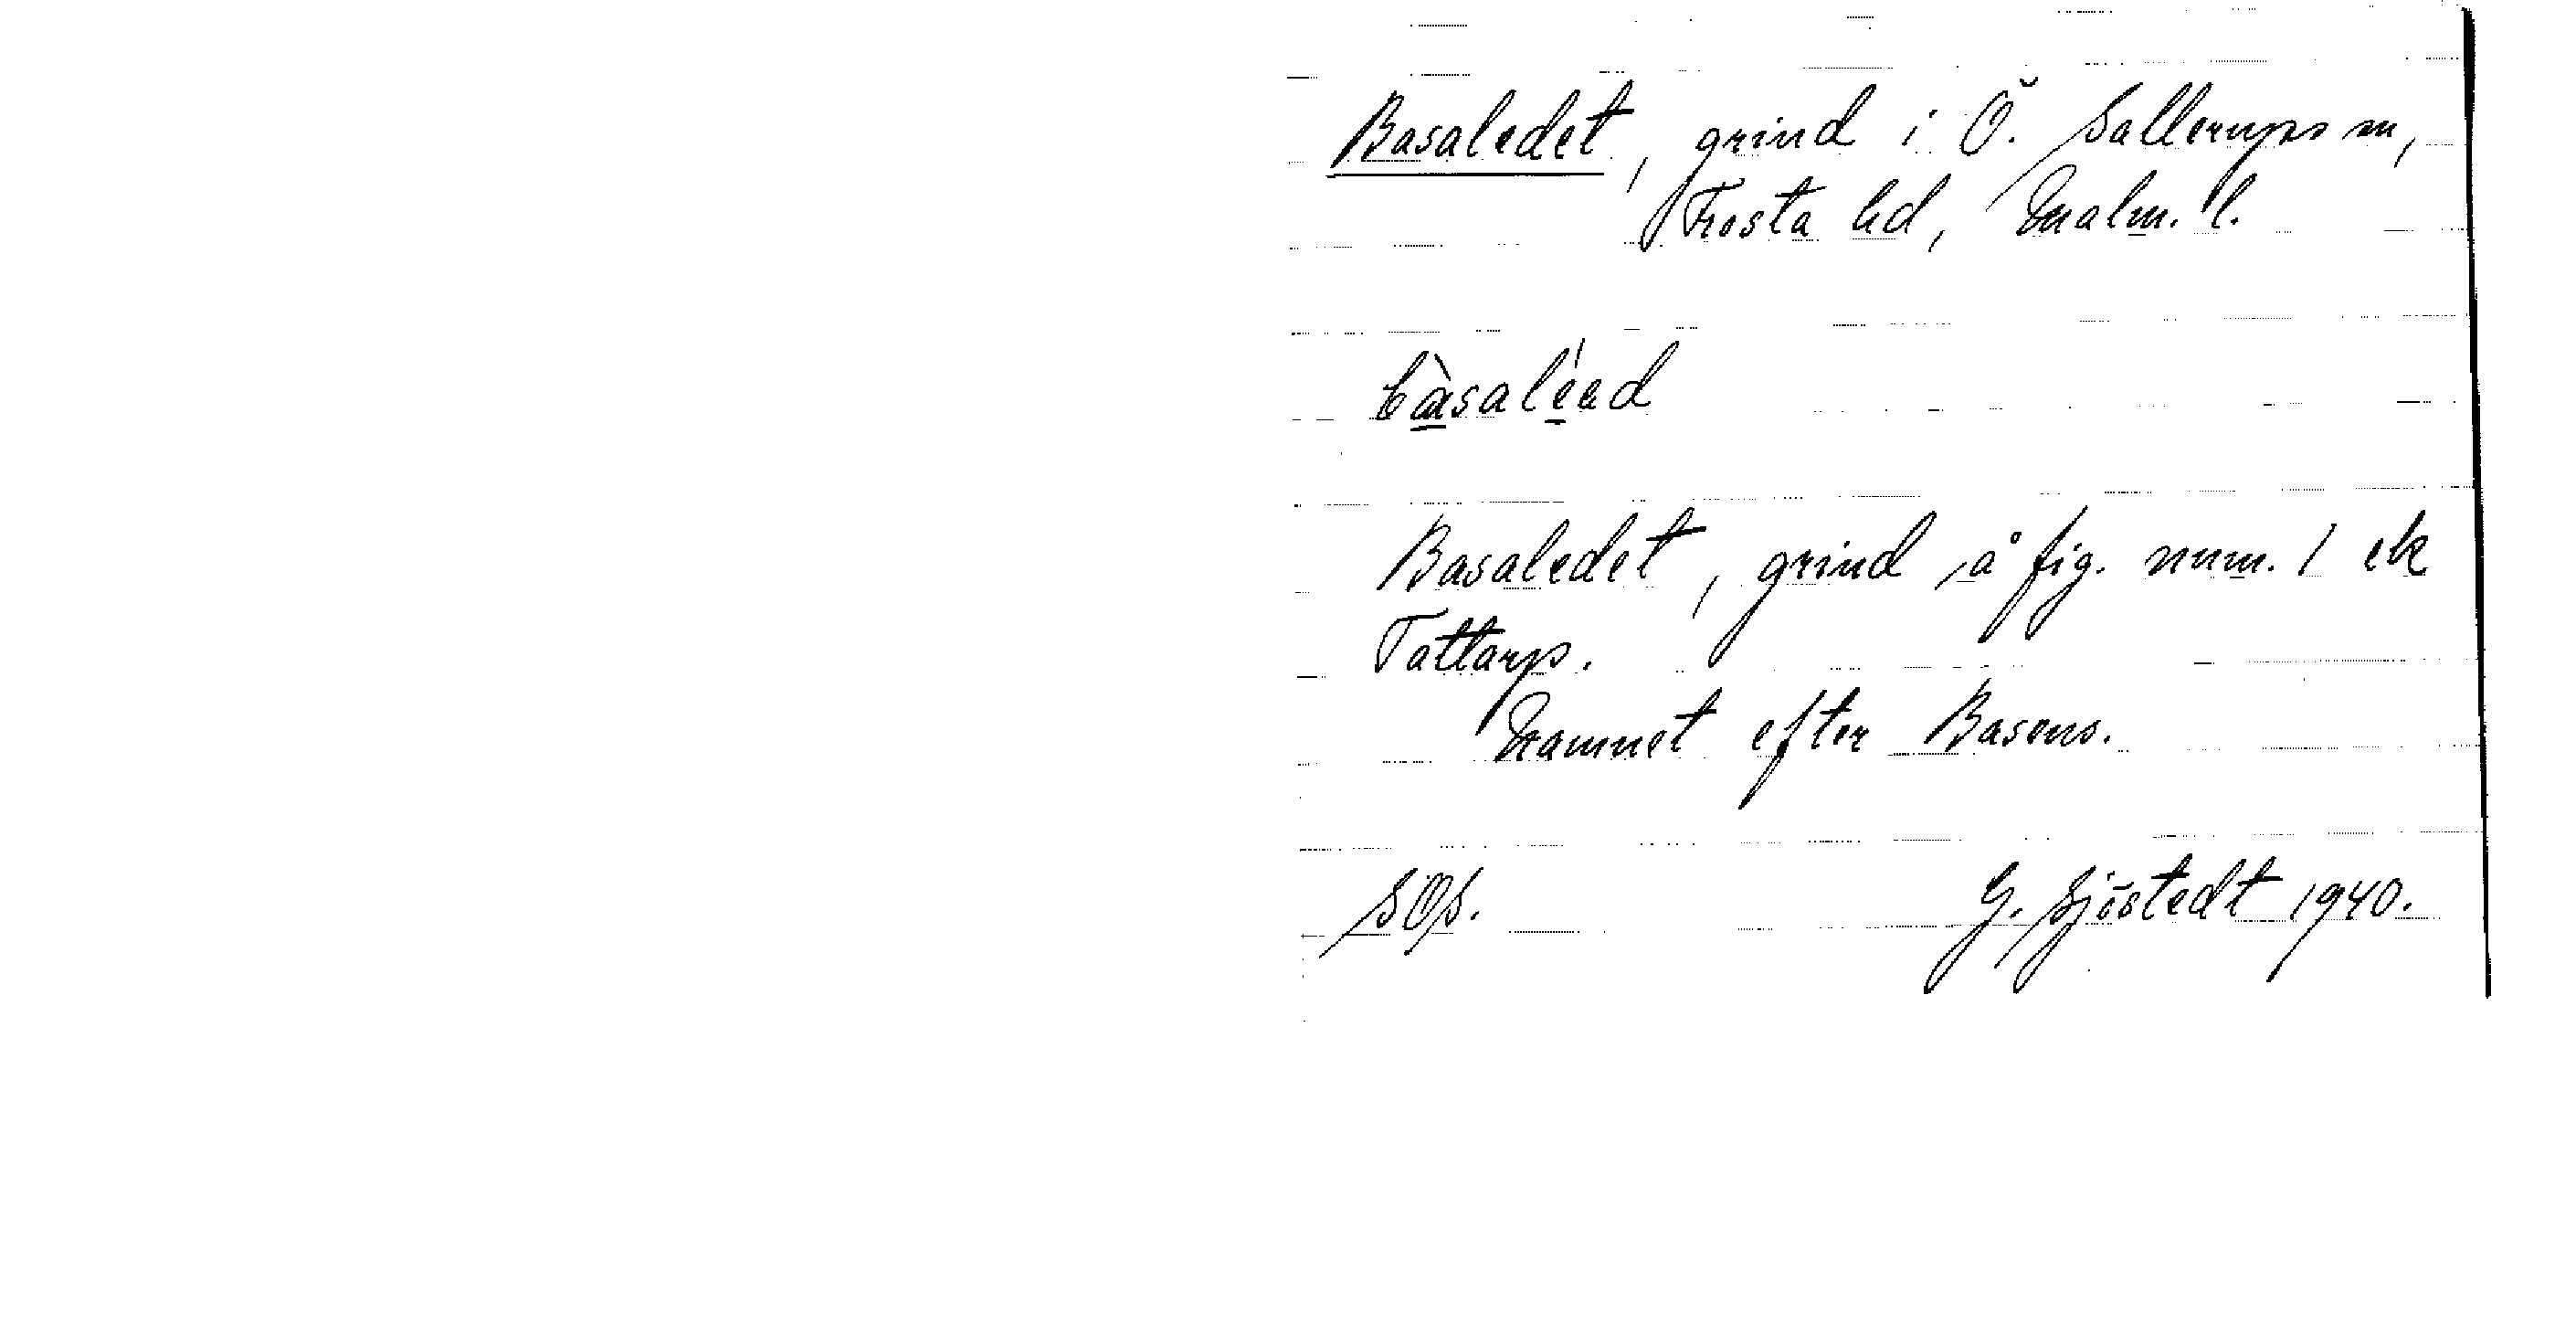 Basaledet, grind i Ö. Sallerups sn,
Frosta hd, Malm. l.
bàsaléed
Basaledet, grind å fig. num. 1 ek
Tattarp.
Namnet efter Basens.
SOS.
G. Sjöstedt 1940.